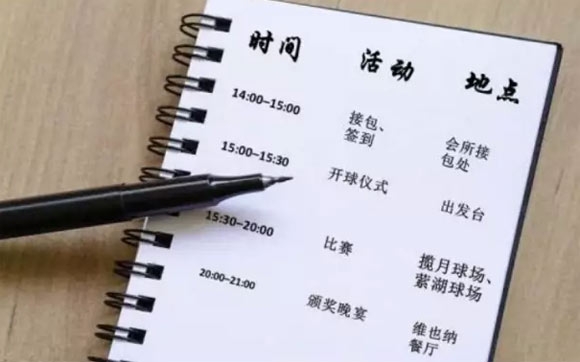 时间 活动 地点
14:00-15:00 接包、签到 会所接包处
15:00-15:30 开球仪式 出发台
15:30-20:00 比赛 揽月球场、萦湖球场
20:00-21:00 颁奖晚宴 维也纳餐厅